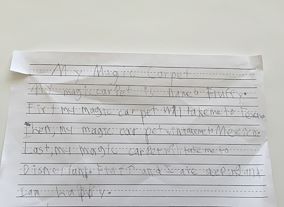 My Magic Carpet
My magic carpet is named Fluffy.
First my magic carpet will take me to
Then, my magic carpet will take me to Mexico.
Last, my magic carpet will take me to
Disneyland. Fluffy and I are
I am happy.